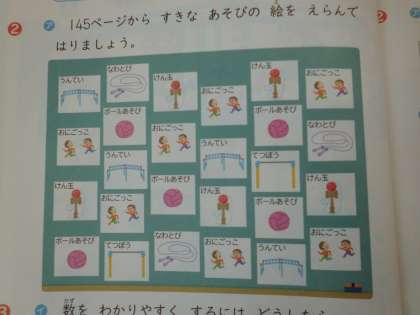 2 ア 145ページから すきな あそびの 絵を えらんで
はりましょう。
うんてい なわとび けん玉 おにごっこ けん玉 おにごっこ
おにごっこ ボールあそび おにごっこ うんてい ボールあそび なわとび
けん玉 うんてい ボールあそび けん玉 てつぼう けん玉
ボールあそび おにごっこ なわとび おにごっこ ボールあそび おにごっこ
てつぼう うんてい
3 イ 数を わかりやすく するには どうしたら
かず